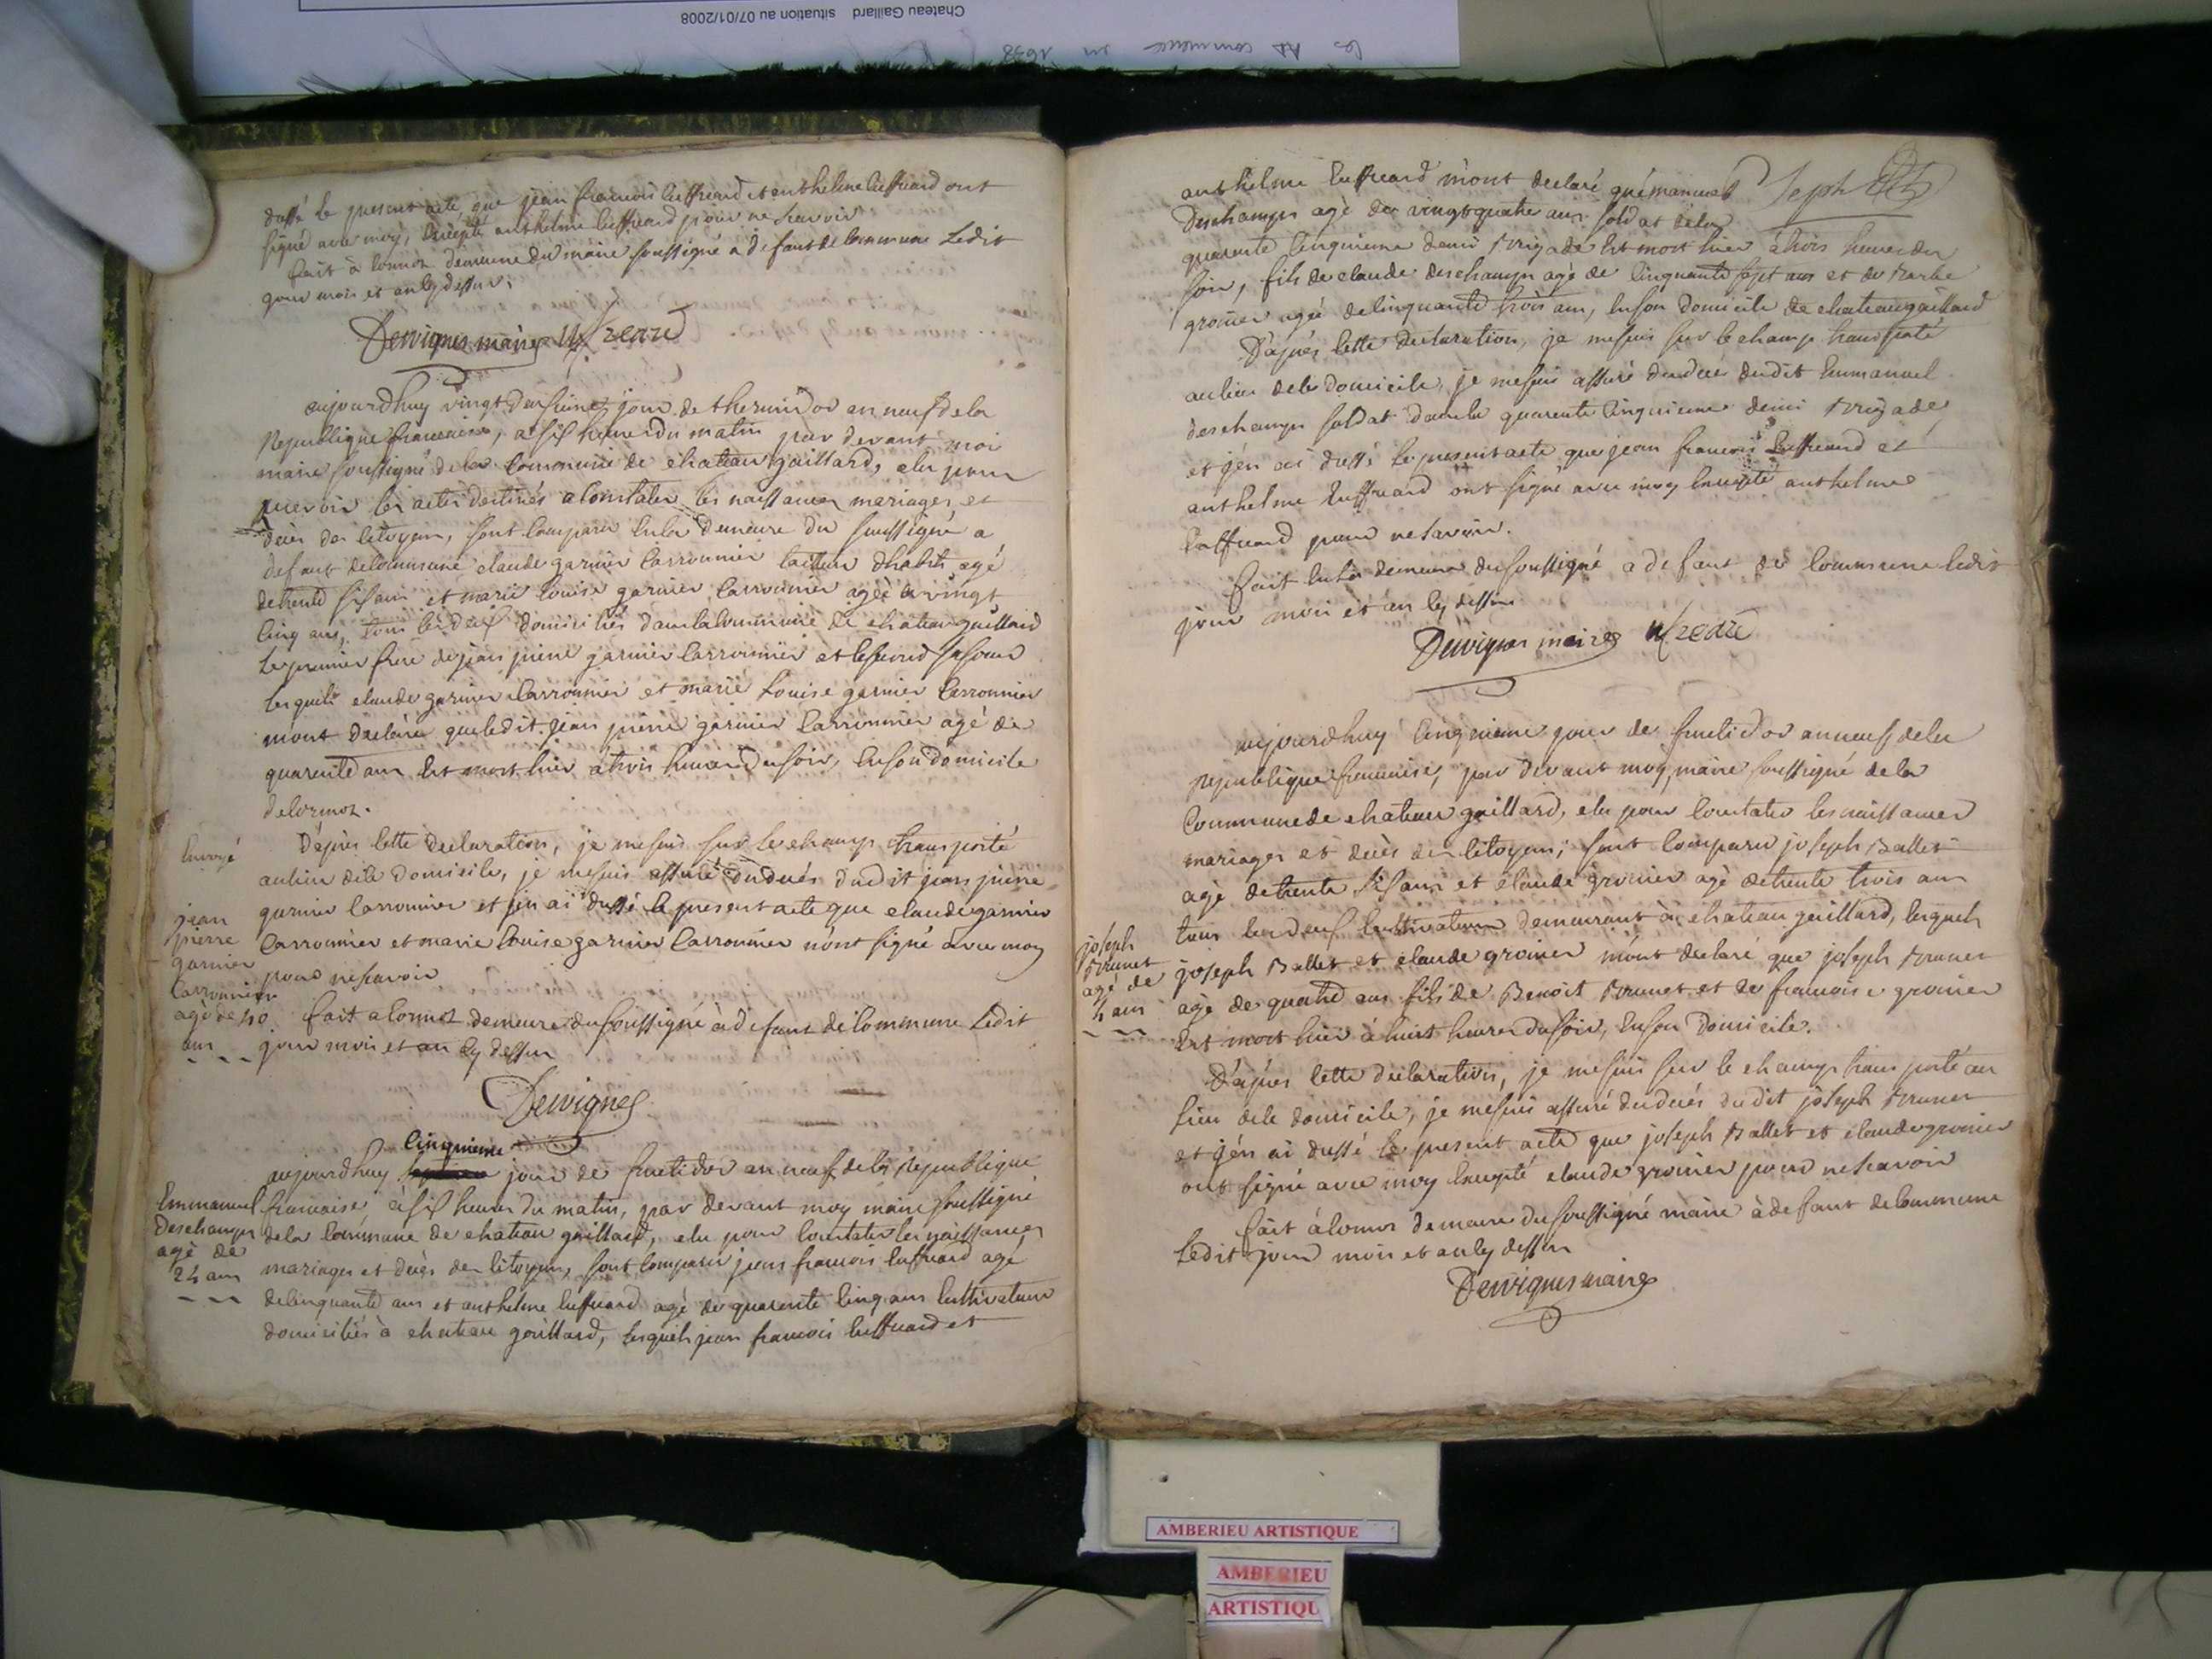 Chateau Gaillard situation au 07/01/2008
les Ad commence en 1698
dressé le present acte que jean francois cuffread et anthelme cuffread ont
signé avec moy, excepté anthelme cuffread pour ne scavoir
fait à demeure du maire soussigné a defaut de commune ledit
jour mois et an cy dessus.
Dervignes maire
aujourdhuy vingt jour de thermidor an neuf de la
Republique francaise, a six heures du matin par devant moi
maire soussigné de la commune de chateau gaillard, elu pour
recevoir les actes destinés a constater les naissances mariages et
décès des citoyens, sont comparu en la demeure du soussigné a
defaut de commune claude garnier carronnier tailleur dhabits agé
de trente six ans et marie louise garnier carronnier agée de vingt
cinq ans, tous les deux domiciliés dans la commune de chateau gaillard
le premier frere de jean pierre garnier carronnier et la segond sa soeur
lesquels claude garnier carronnier et marie louise garnier carronnier
mont declaré que ledit jean pierre garnier carronnier agé de
quarente ans est mort hier à trois heures du soir, en son domicile
de
D'après cette declaration, je me suis sur le champ transporté
au lieu de ce domicile, je me suis assuré du décès dudit jean pierre
garnier carronnier et j'en ai dressé le present acte que claude garnier
carronnier et marie louise garnier carronnier n'ont signé avec moy
pour ne scavoir
fait a demeure du soussigné à defaut de commune ledit
jour mois et an cy dessus
Envoyé
jean
pierre
garnier
carronnier
agé de 40
ans
Dervignes
cinquieme
aujourdhuy jour de fructidor an neuf de la Republique
francaise, à six heures du matin, par devant moy maire soussigné
de la commune de chateau gaillard, elu pour constater les naissances
mariages et décès des citoyens, sont comparu jean francois cuffread agé
de cinquante ans et anthelme cuffread agé de quarente cinq ans cultivateurs
domiciliés à chateau gaillard, lesquels jean francois cuffread et
Emmanuel
Deschamps
agé de
24 ans
anthelme cuffread m'ont declaré qu'emanuel
Deschamps agé de vingt quatre ans soldat de la
quarente cinquieme demi Brigade est mort hier à trois heures du
soir, fils de claude deschamps agé de cinquante sept ans et de Barbe
groiner agée de cinquante trois ans, en son domicile de chateau gaillard
D'après cette declaration, je me suis sur le champ transporté
au lieu de ce domicile, je me suis assuré du décès dudit Emmanuel
deschamps soldat dans la quarente cinquieme demi Brigade
et j'en ai dressé le present acte que jean francois cuffread et
anthelme cuffread ont signé avec moy excepté anthelme
cuffread pour ne savoir.
fait en la demeure du soussigné a defaut de commune ledit
jour mois et an cy dessus
Dervignes maire
aujourdhuy cinquieme jour de fructidor an neuf de la
republique francaise, par devant moy maire soussigné de la
Commune de chateau gaillard, elu pour constater les naissances
mariages et décès des citoyens; sont comparu joseph Ballet
agé de trente six ans et claude groiner agé de trente trois ans
tous les deux cultivateurs demeurant à chateau gaillard, lesquels
joseph Ballet et claude groiner m'ont declaré que joseph Brunet
agé de quatre ans fils de Benoit Brunet et de francoise groiner
est mort hier à huit heures du soir, en son domicile.
D'après cette declaration, je me suis sur le champ transporté au
lieu de ce domicile, je me suis assuré du décès dudit joseph Brunet
et j'en ai dressé le present acte que joseph Ballet et claude groiner
ont signé avec moy excepté claude groiner pour ne scavoir
fait à demeure du soussigné maire à defaut de commune
ledit jour mois et an cy dessus
joseph
Brunet
agé de
4 ans
Dervignes maire
AMBERIEU ARTISTIQUE
AMBERIEU
ARTISTIQU